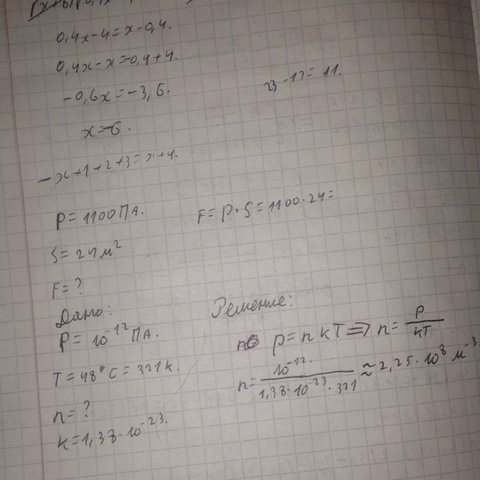 0,4x-4=x-0,4.
0,4x-x=-0,4+4.
-0,6x=-3,6.
x=6.
23-12=11.
-x+1+2+3=x+4.
P=1100Па.
F=P·S=1100·24=
S=24м²
F=?
Дано:
P=10⁻¹²Па.
T=48°C=321k.
n=?
k=1,38·10⁻²³.
Решение:
p=nkT⟹n=P/kT
n=10⁻¹²/1,38·10⁻²³·321≈2,25·10⁸м⁻³